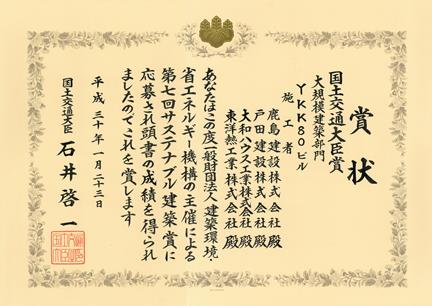 賞状
国土交通大臣賞
大規模建築部門
YKK80ビル
施工者
鹿島建設株式会社殿
戸田建設株式会社殿
大和ハウス工業株式会社殿
東洋熱工業株式会社殿
あなたはこの度一般財団法人建築環境・
省エネルギー機構の主催による
第七回サステナブル建築賞に
応募され頭書の成績を得られ
ましたのでこれを賞します
平成三十年一月二十三日
国土交通大臣 石井啓一